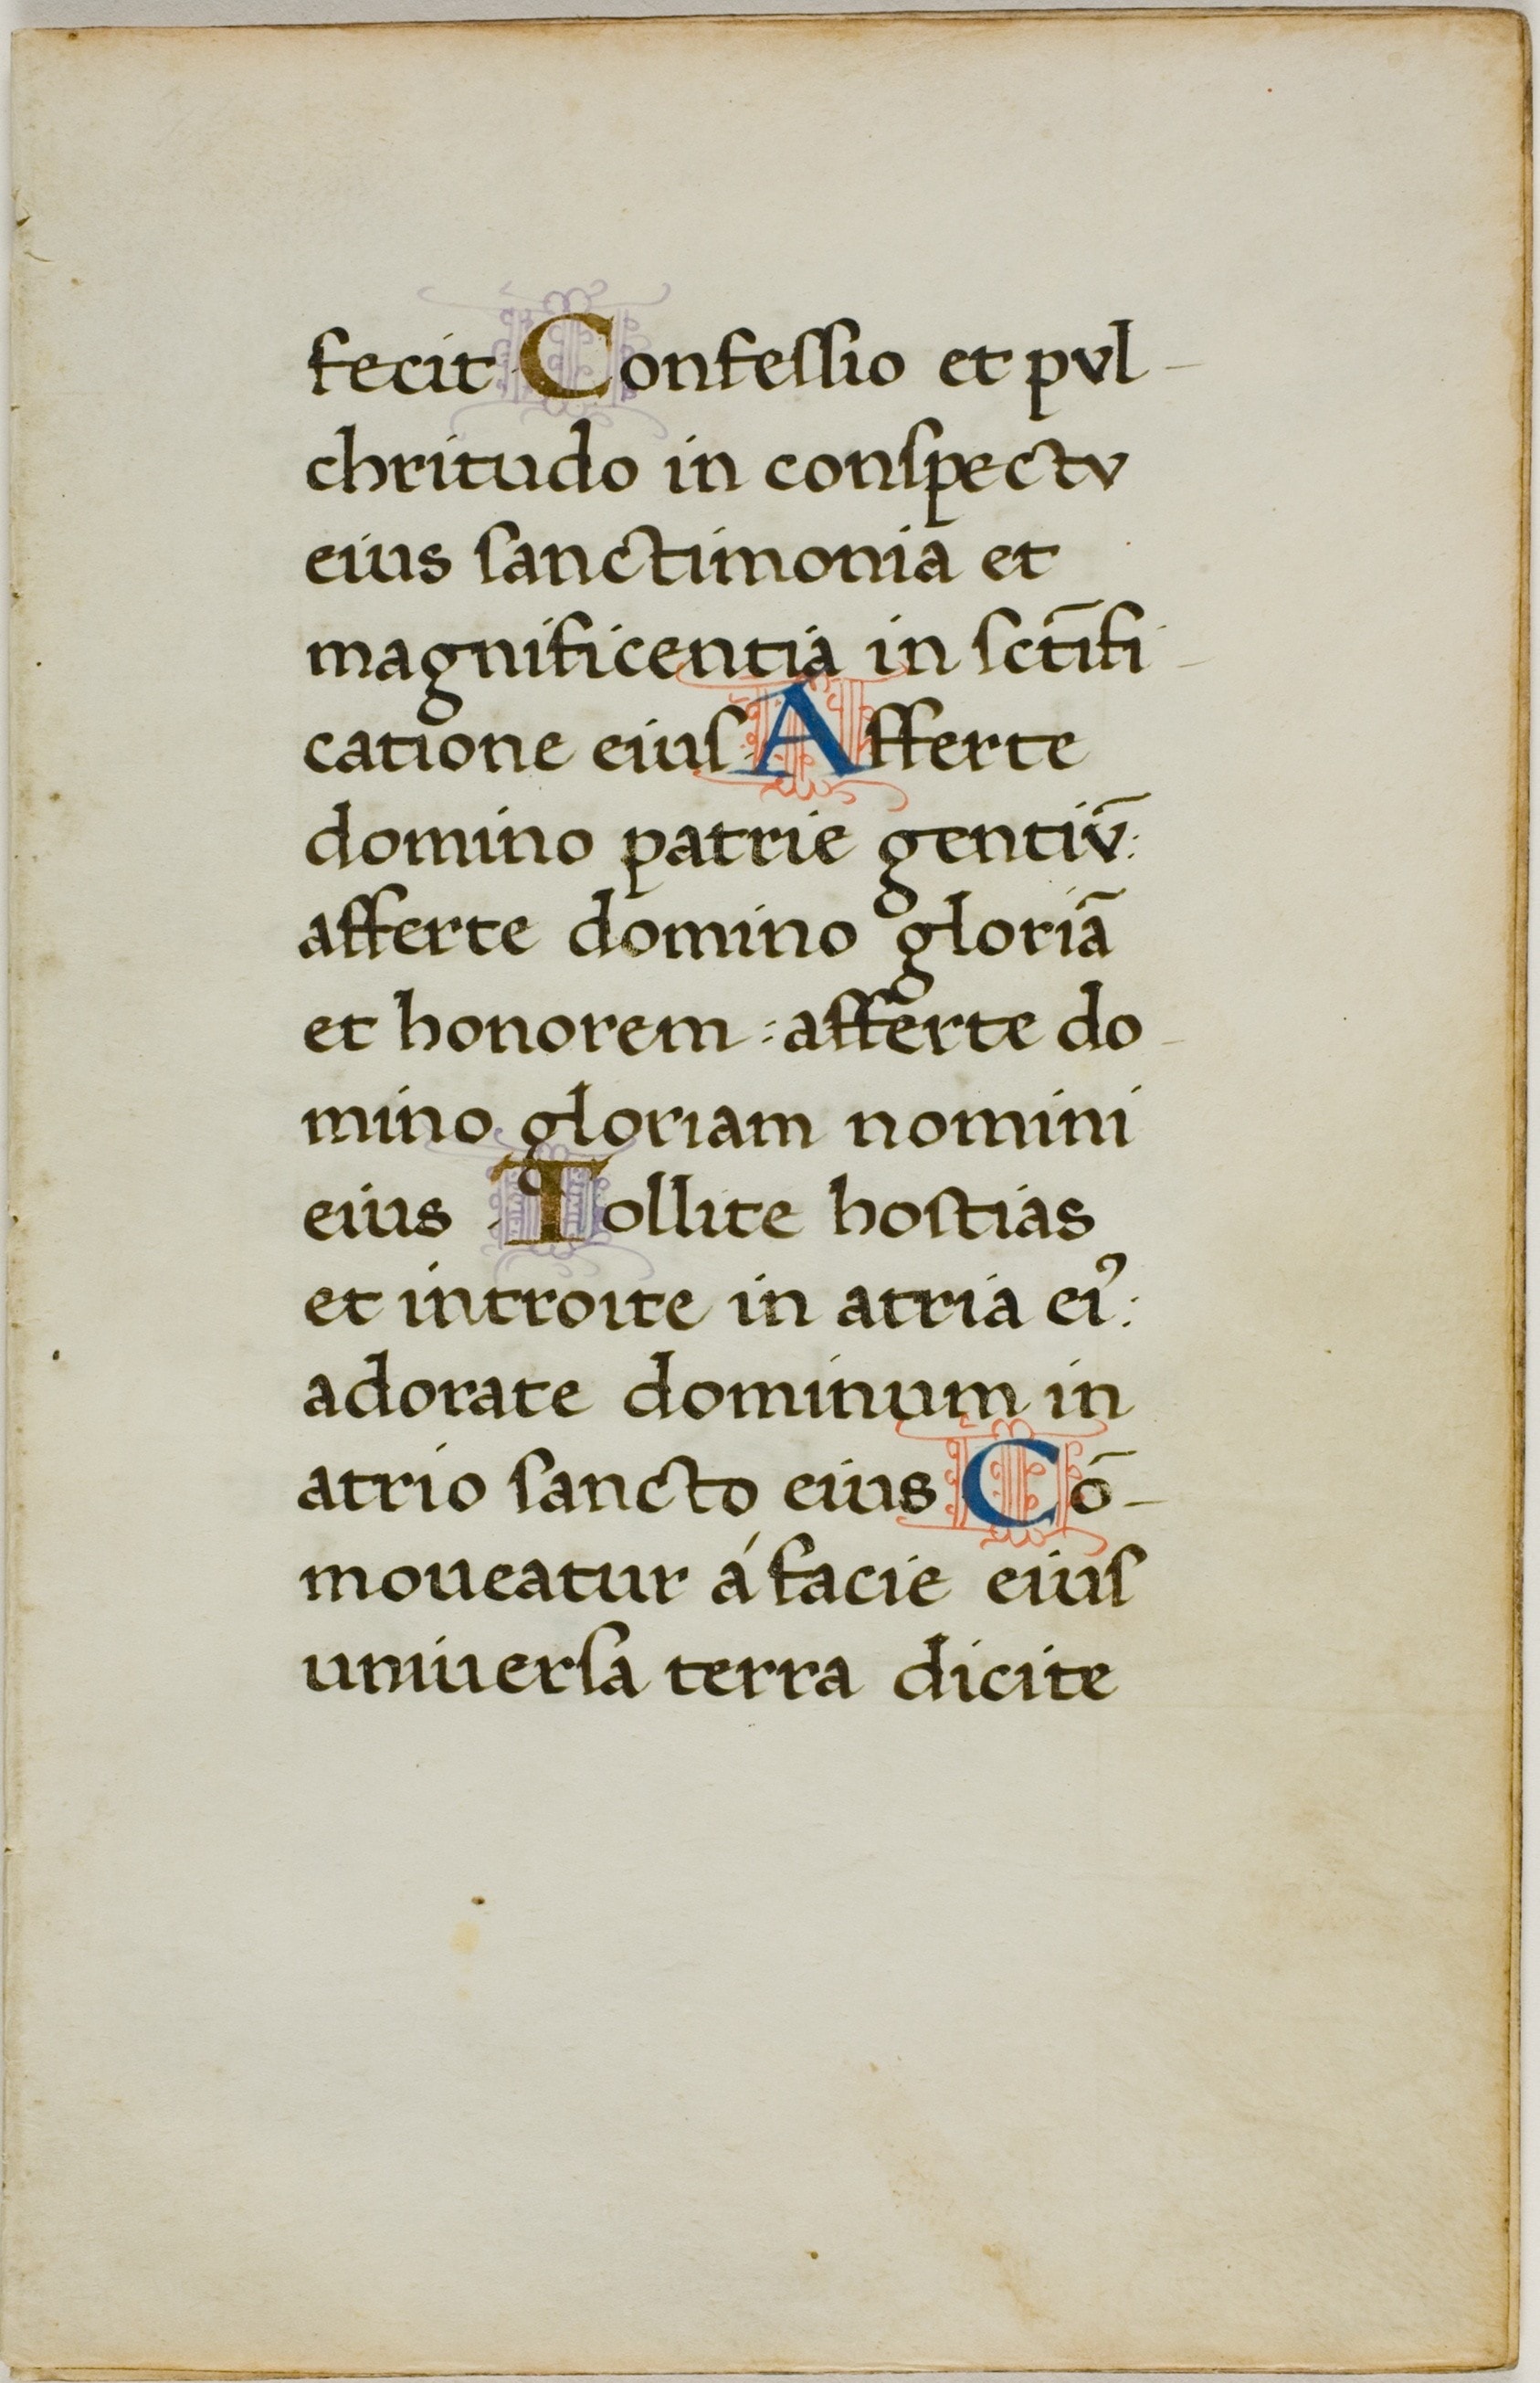 fecit Confeſſio et pvl-
chritudo in conſpectv
eius ſanctimonia et
magnificentia in ſct̄ifi-
catione eiuſ Afferte
domino patrie gentiv̄:
afferte domino gloriā
et honorem: afferte do-
mino gloriam nomini
eius Tollite hoſtias
et introite in atria eiꝰ:
adorate dominum in
atrio ſancto eius Cō-
moueatur á facie eiuſ
uniuerſa terra dicite